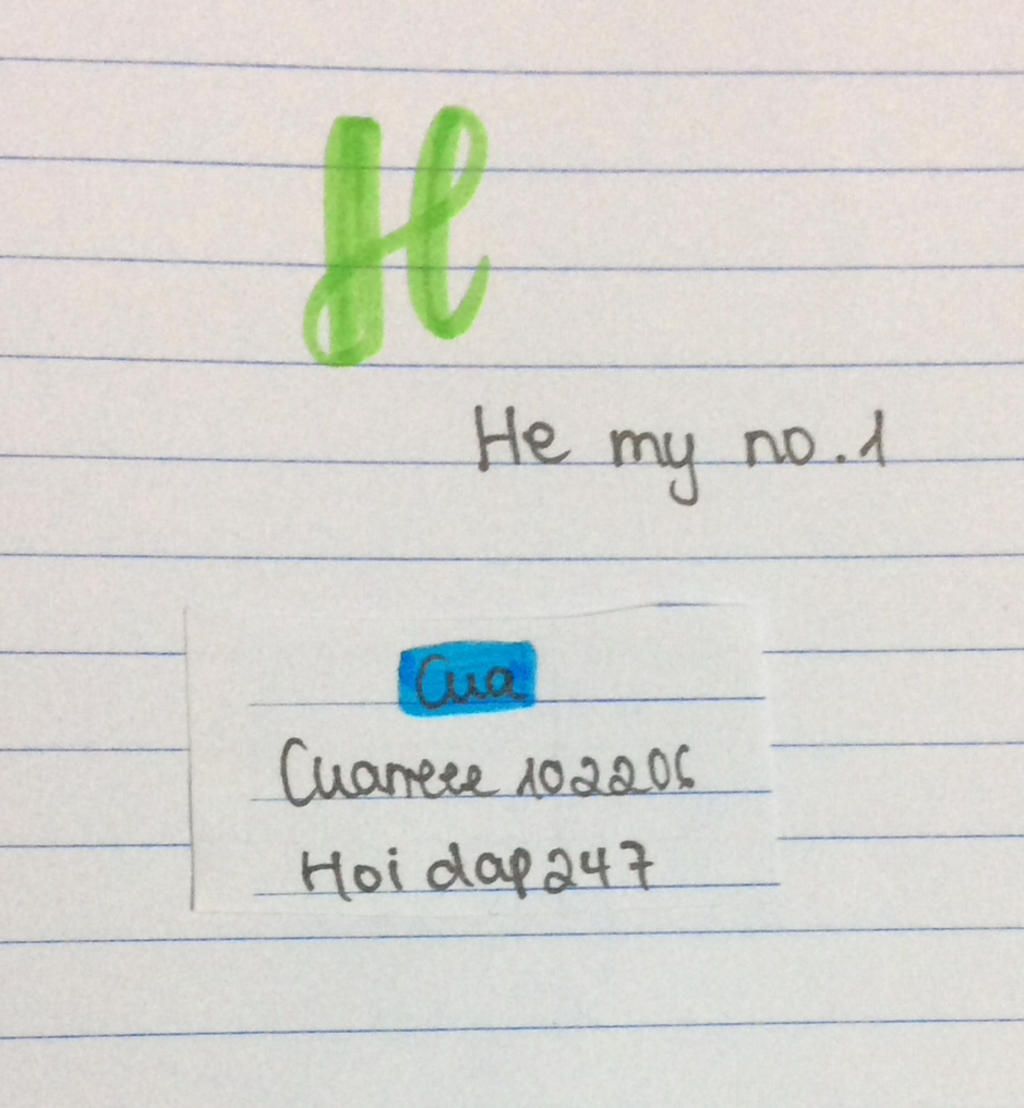 H
He my no.1
Cua
Cuaneee 102206
Hoidap247